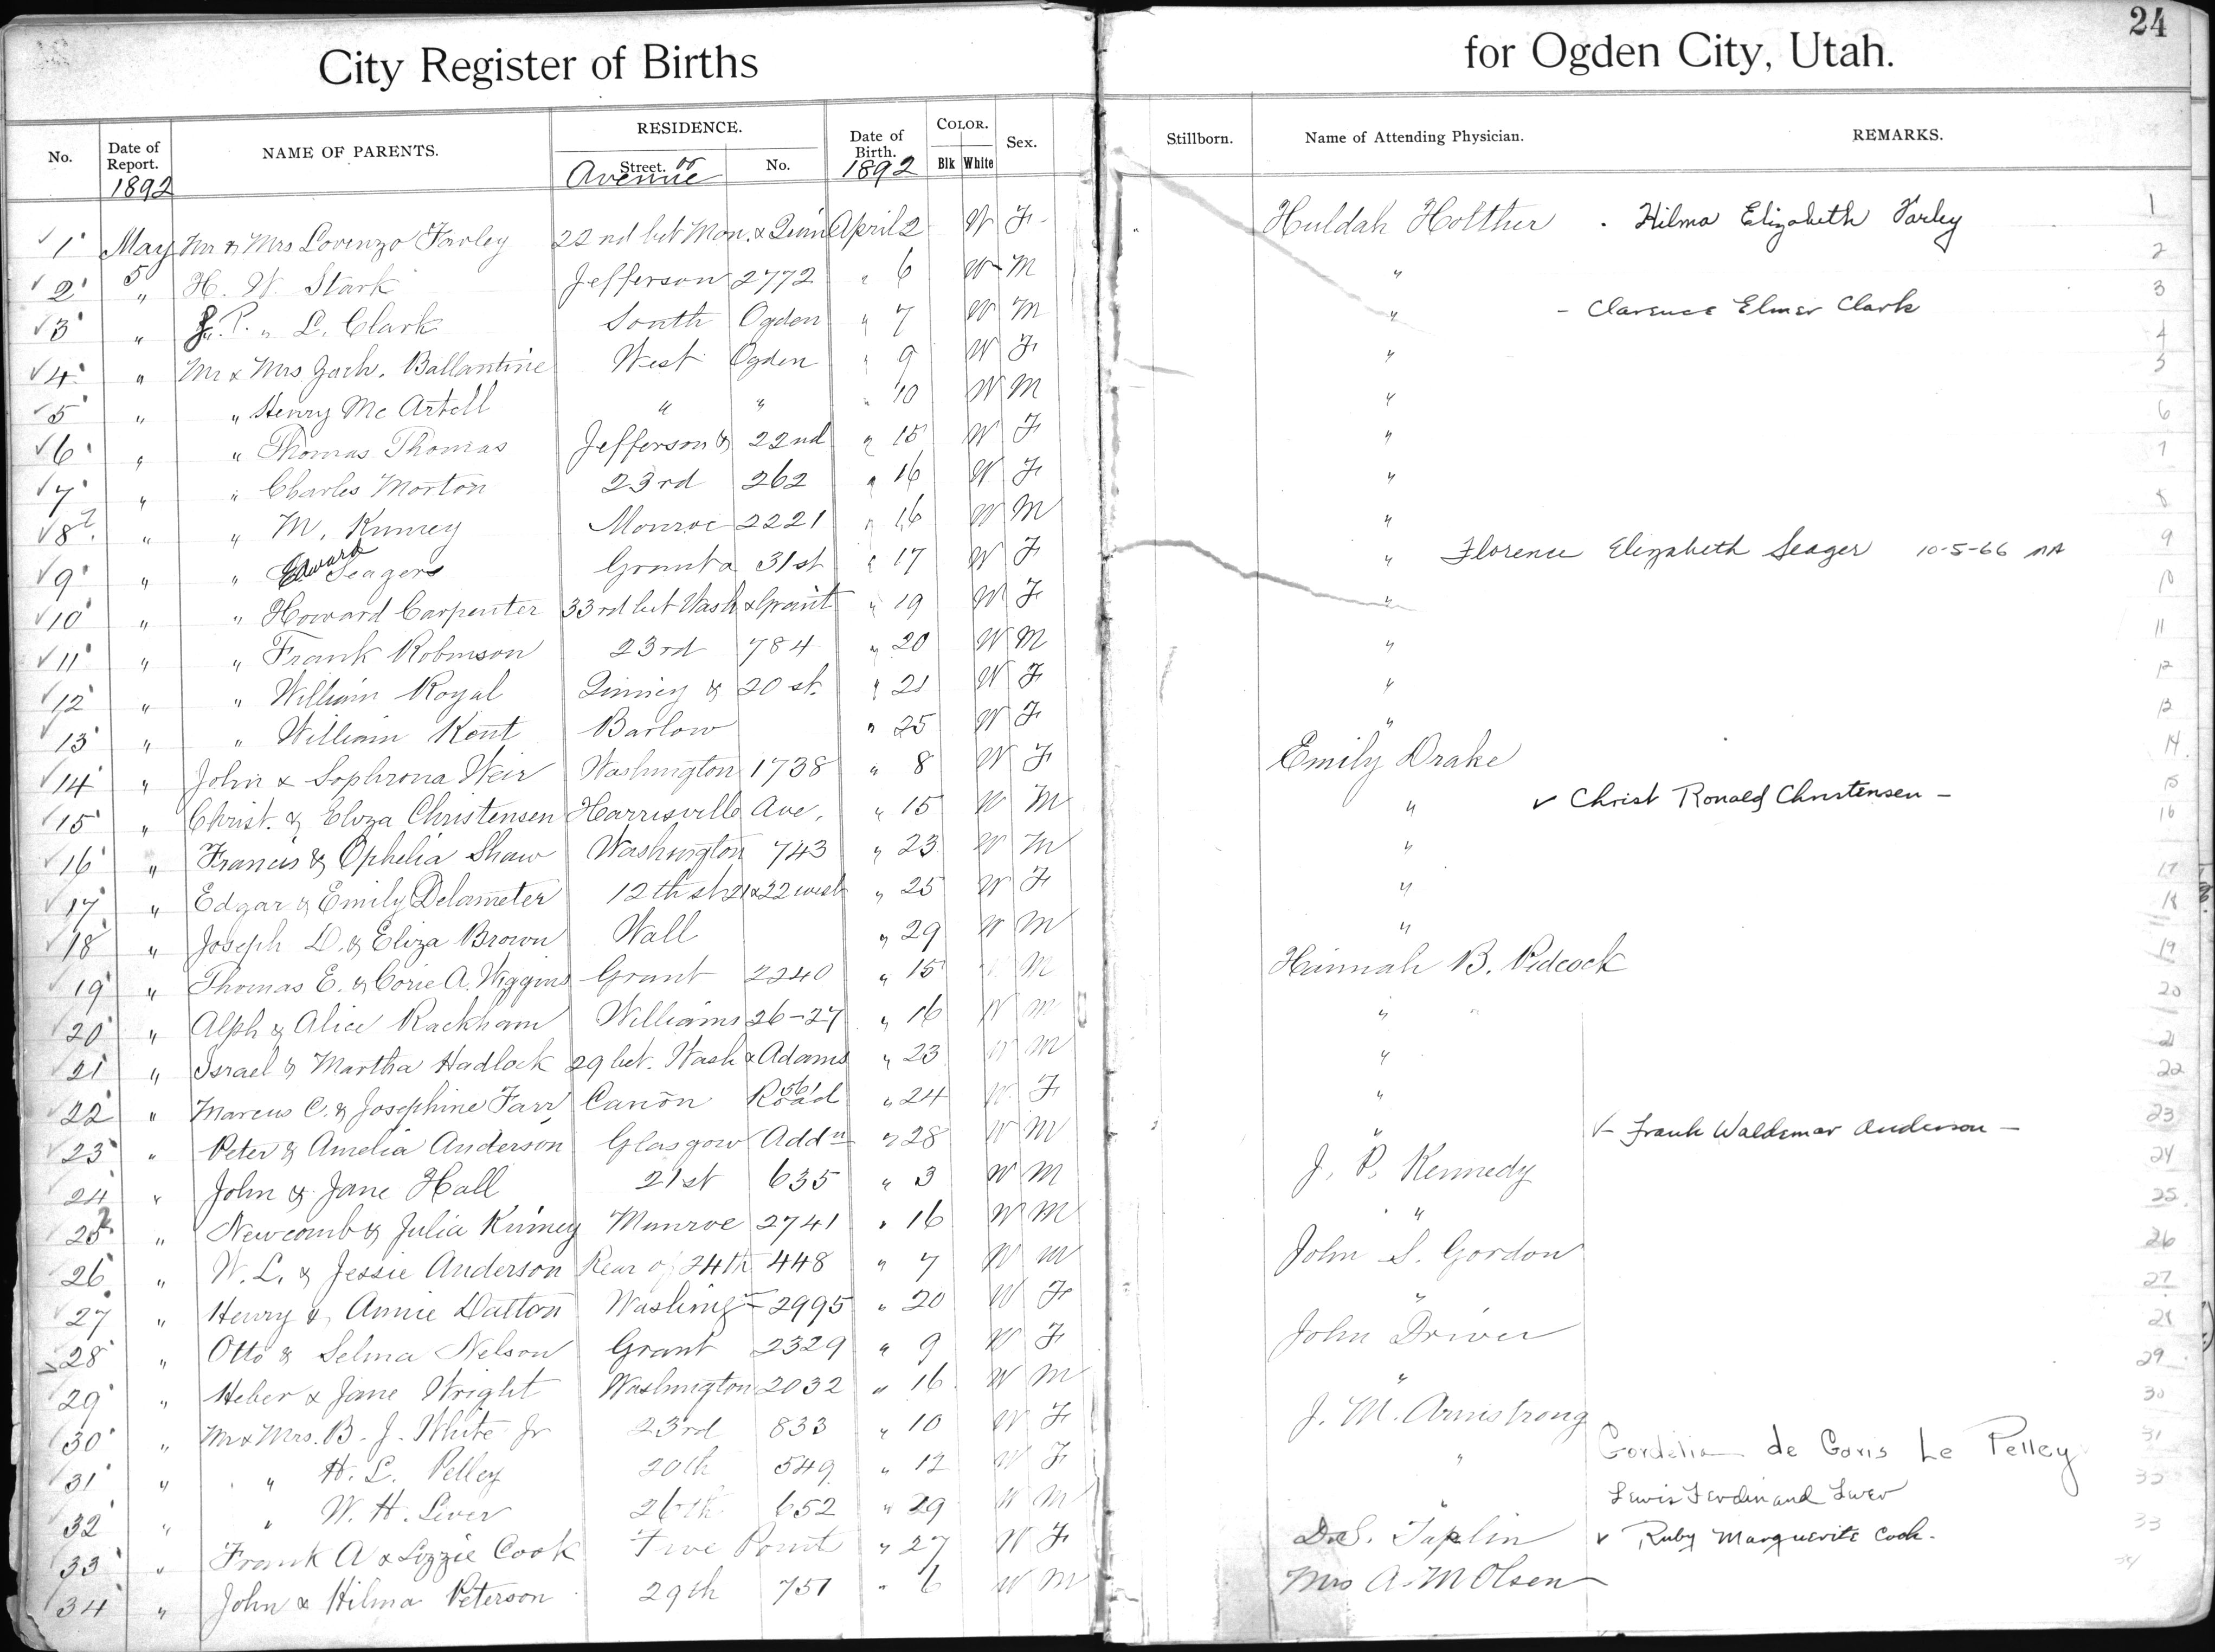 City Register of Births for Ogden City, Utah. 24
No. Date of Report. NAME OF PARENTS. RESIDENCE. Street. No. Date of Birth. COLOR. Blk White Sex. Stillborn. Name of Attending Physician. REMARKS.
1892 Avenue or 1892
1 May 5 Mr & Mrs Lorenzo Farley 22nd bet Mon. & Quin April 2 W F Huldah Holther Hilma Elizabeth Farley 1
2 " H. W. Stark Jefferson 2772 " 6 W M " 2
3 " J. P. " L. Clark South Ogden " 7 W M " - Clarence Elmer Clark 3
4 " Mr & Mrs Zach. Ballantine West Ogden " 9 W F " 4
5 " " Henry Mc Artell " " " 10 W M " 5
6 " " Thomas Thomas Jefferson & 22nd " 15 W F " 6
7 " " Charles Morton 23rd 262 " 16 W F " 7
8 " " M. Kinney Monroe 2221 " 16 W M " 8
9 " " Edward Seagers Grant & 31st " 17 W F " Florence Elizabeth Seager 10-5-66 9
10 " " Howard Carpenter 33rd bet Wash & Grant " 19 W F " 10
11 " " Frank Robinson 23rd 784 " 20 W M " 11
12 " " William Royal Quincy & 20 st. " 21 W F " 12
13 " " William Kent Barlow " 25 W F " 13
14 " John & Sophrona Weir Washington 1738 " 8 W F Emily Drake 14
15 " Christ. & Eliza Christensen Harrisville Ave. " 15 W M " ✓ Christ Ronald Christensen - 15
16 " Francis & Ophelia Shaw Washington 743 " 23 W M " 16
17 " Edgar & Emily Delameter 12th st 21 & 22 west " 25 W F " 17
18 " Joseph D. & Eliza Brown Wall " 29 W M " 18
19 " Thomas E. & Corie A. Wiggins Grant 2240 " 15 M Hannah B. Pidcock 19
20 " Alph & Alice Rackham Williams 26-27 " 16 W M " " 20
21 " Israel & Martha Hadlock 29 bet. Wash & Adams " 23 W M " 21
22 " Marcus C. & Josephine Farr Cañon Road 561 " 24 W F " 22
23 " Peter & Amelia Anderson Glasgow Addn " 28 W M " ✓- Frank Waldemar Anderson - 23
24 " John & Jane Hall 21st 635 " 3 W M J. P. Kennedy 24
25 " Newcomb & Julia Kinney Munroe 2741 " 16 W M " 25
26 " W. L. & Jessie Anderson Rear of 24th 448 " 7 W M John S. Gordon 26
27 " Henry & Annie Dalton Washingn 2995 " 20 W F " 27
28 " Otto & Selma Nelson Grant 2329 " 9 W F John Driver 28
29 " Heber & Jane Wright Washington 2032 " 16 W M " 29
30 " Mr & Mrs. B. J. White Jr 23rd 833 " 10 W F J. M. Armstrong 30
31 " " H. L. Pelley 20th 549 " 12 W F " Cordelia de Garis Le Pelley 31
32 " " W. H. Liver 26th 652 " 29 W M " Lewis Ferdinand Liver
33 " Frank A & Lizzie Cook Five Point " 27 W F D.S. Taplin ✓ Ruby Marguerite Cook. 33
34 " John & Hilma Peterson 29th 751 " 6 W M Mrs A. M Olsen 34